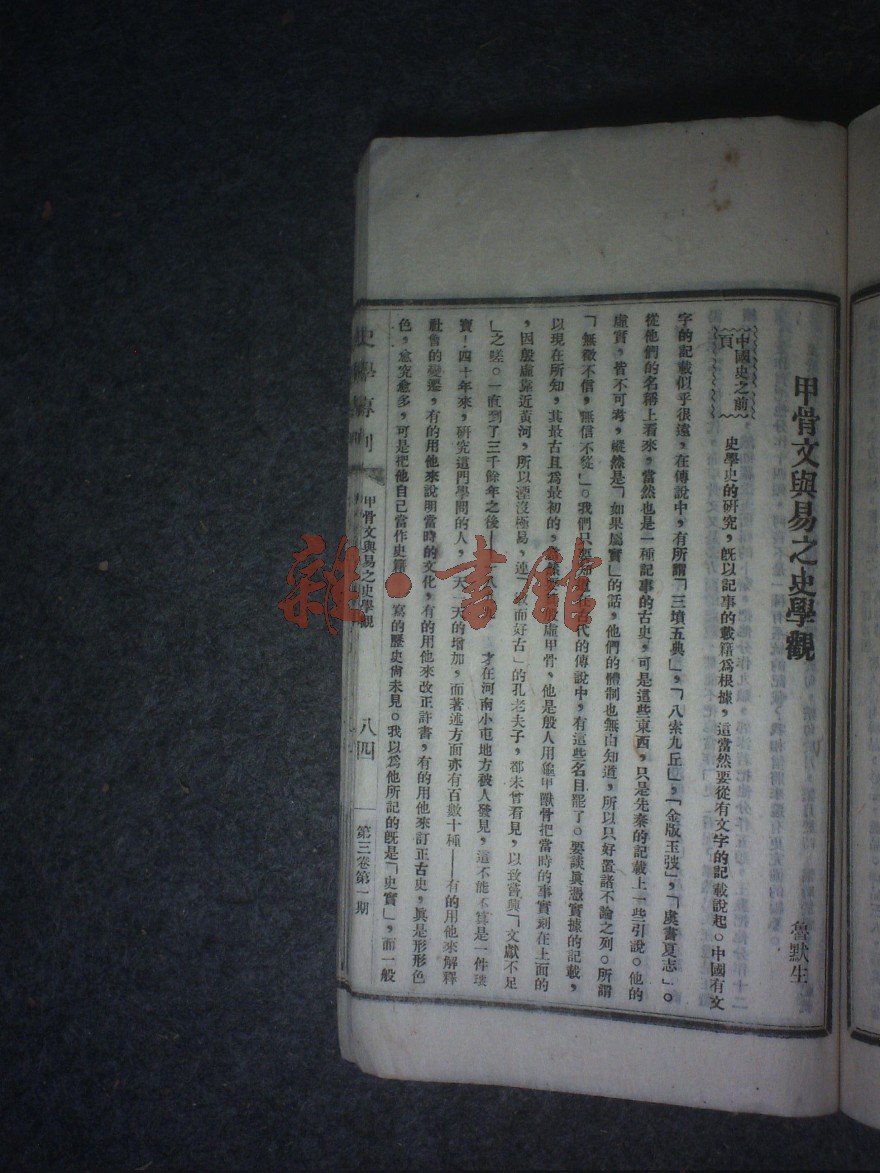 甲骨文與易之史學觀
魯默生
中國史之前
頁
史學史的研究，旣以記事的載籍爲根據，這當然要從有文字的記載說起。中國有文
字的記載似乎很遠，在傳說中，有所謂「三墳五典」，「八索九丘」，「金版玉弢」，「虞書夏志」。
從他們的名稱上看來，當然也是一種記事的古史，可是這些東西，只是先秦的記載上一些引說。他的
虛實，皆不可考，縱然是「如果屬實」的話，他們的體制也無由知道，所以只好置諸不論之列。所謂
「無徵不信，無信不從」。我們只要知道在古代的傳說中，有這些名目罷了。要談眞憑實據的記載，
以現在所知，其最古且爲最初的，當然要殷虛甲骨，他是殷人用龜甲獸骨把當時的事實刻在上面的
，因殷虛靠近黃河，所以湮沒極易，連「敏而好古」的孔老夫子，都未曾看見，以致嘗興「文獻不足
」之嗟。一直到了三千餘年之後——八 才在河南小屯地方被人發見，這不能不算是一件瑰
寶！四十年來，研究這門學問的人，一天一天的增加，而著述方面亦有百數十種——有的用他來解釋
社會的變遷，有的用他來說明當時的文化，有的用他來改正許書，有的用他來訂正古史，眞是形形色
色，愈究愈多，可是把他自己當作史籍 寫的歷史尙未見。我以爲他所記的旣是「史實」，而一般
史學專刊
甲骨文與易之史學觀
八四
第三卷第一期
雜·書館